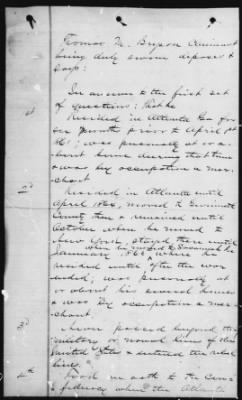 Thomas M. Bryson Claimant
being duly sworn deposes &
says:
In answer to the first set
of questions: that he
1st
Resided in Atlanta Ga for
six months prior to April 1st
1861; was personally at or a-
bout home during that time
& was by occupation a mer-
chant
2d
Resided in Atlanta until
April 1864, moved to Gwinnett
County then & remained until
October when he moved to
New York, stayed there until
January 1865 when he moved to Savannah Ga where he
resided until after the war
ended; was personally at
or about his several homes
& was by occupation a mer-
chant.
3d
Never passed beyond the
military or naval lines of the
United States & entered the rebel
lines.
4th
Took no oath to the Con-
federacy when the Atlanta